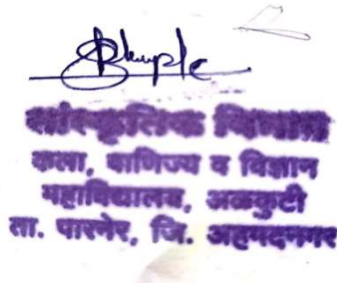 सांस्कृतिक विभाग
कला, वाणिज्य व विज्ञान
महाविद्यालय, अळकुटी
ता. पारनेर, जि. अहमदनगर